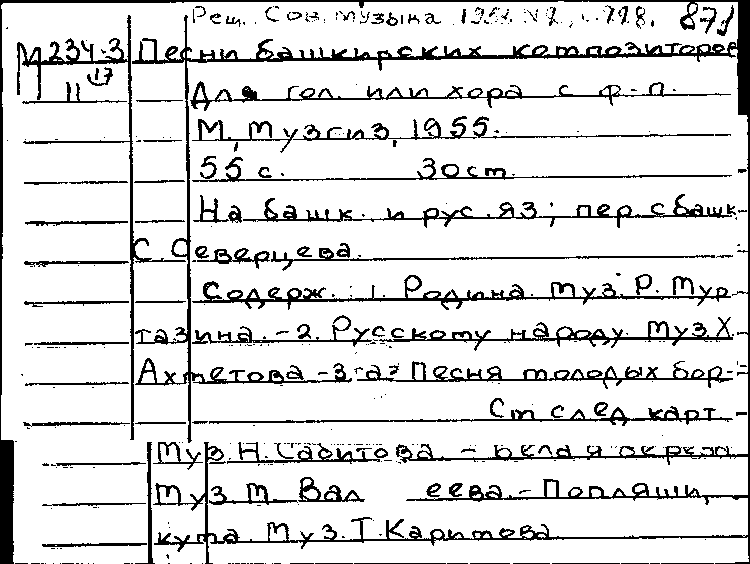 Рец. Сов. музыка 195 № с. 118. 871
М 234-3 Песни башкирских композиторов
17
II Для гол. или хора с ф.-п.
М., Музгиз, 1955.
55 с. 30 ст.
На башк. и рус. яз; пер. с башк
С. Северцева.
Содерж.: 1. Родина. Муз. Р. Мур
тазина. - 2. Русскому народу. Муз. Х
Ахметова - 3. Песня молодых бор-
См след карт
Муз. Н. Сабитова. - Белая береза
Муз. М. Вал еева. - Попляши,
кума. Муз. Т. Каримова